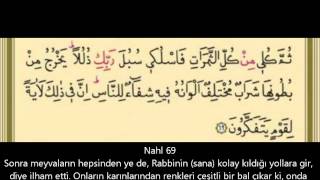 ثُمَّ كُلِي مِنْ كُلِّ الثَّمَرَاتِ فَاسْلُكِي سُبُلَ رَبِّكِ ذُلُلًا يَخْرُجُ مِنْ
بُطُونِهَا شَرَابٌ مُخْتَلِفٌ اَلْوَانُهُ فِيهِ شِفَاءٌ لِلنَّاسِ اِنَّ فِي ذٰلِكَ لَاٰيَةً
لِقَوْمٍ يَتَفَكَّرُونَ ﴿٦٩﴾
Nahl 69
Sonra meyvaların hepsinden ye de, Rabbinin (sana) kolay kıldığı yollara gir,
diye ilham etti. Onların karınlarından renkleri çeşitli bir bal çıkar ki, onda